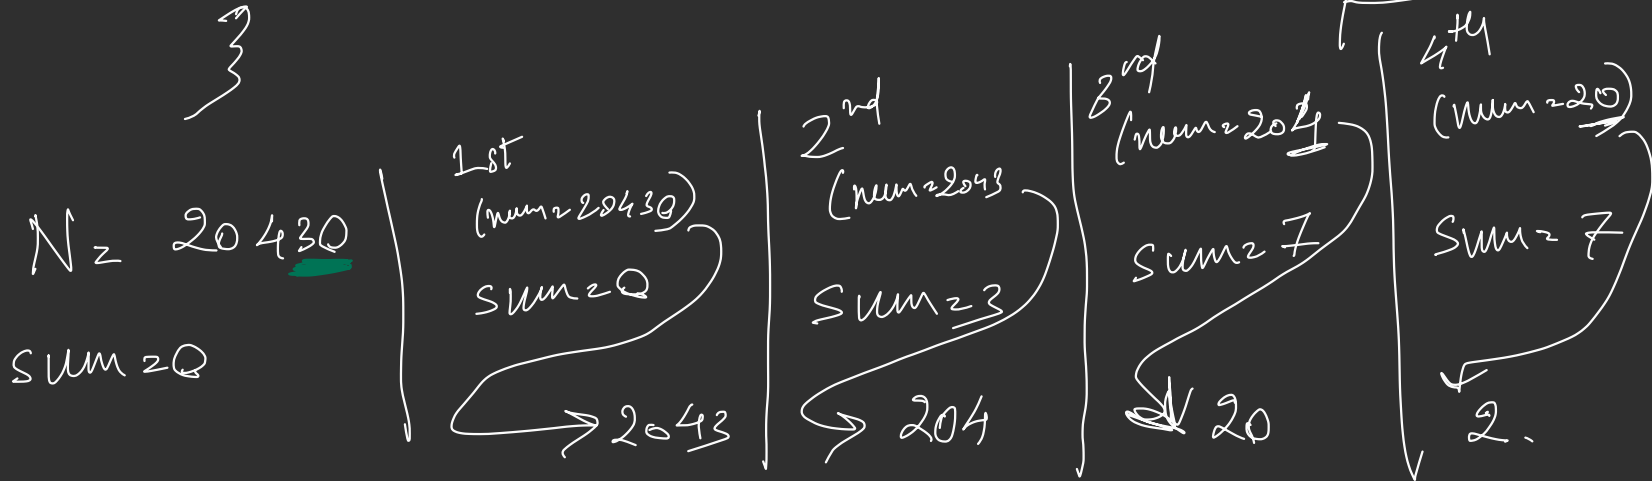 }
N = 20430
sum = 0
1st
(num = 20430)
sum = 0
2043
2nd
(num = 2043
sum = 3
204
3rd
(num = 204
sum = 7
20
4th
(num = 20)
sum = 7
2.